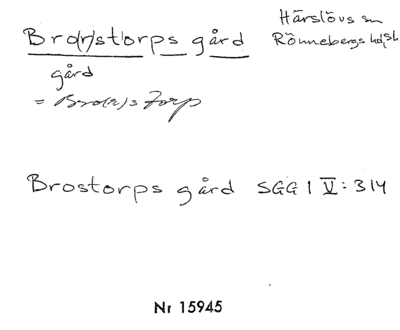 Bro(r)st(orps gård
Härslövs sn
Rönnebergs hd, Sk
gård
= Bro(r)storp
Brostorps gård SGG I V: 314
Nr 15945